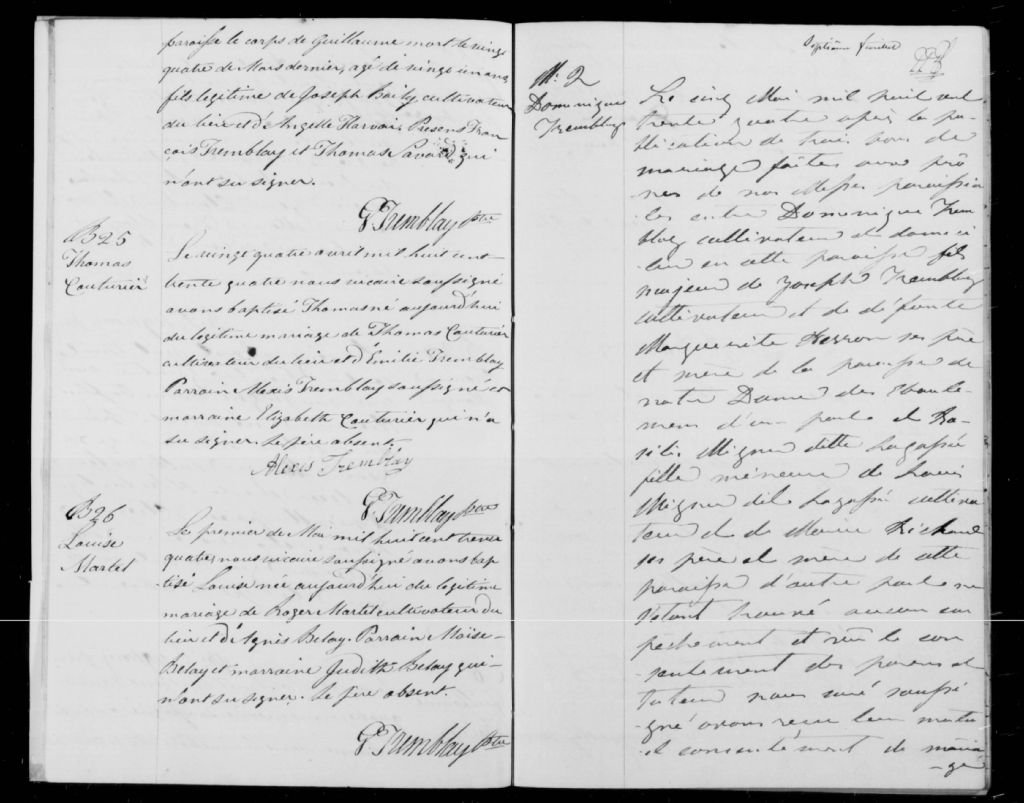 paroisse le corps de Guillaume mort le vingt
quatre de Mars dernier, agé de vingt un ans,
fils legitime de Joseph Baily cultivateur
du lieu et d'Angelle Harvais. Presens Fran
çois Tremblay et Thomas Savard qui
n'ont su signer.
G Tremblay Ptre
B 25
Thomas
Couturier
Le vingt quatre avril mil huit cent
trente quatre nous vicaire soussigné
avons baptisé Thomas né aujourd'hui
du legitime mariage de Thomas Couturier
cultivateur du lieu et d'Émilie Tremblay
Parrain Alexis Tremblay soussigné et
marraine Elizabeth Couturier qui n'a
su signer. Le père absent.
Alexis Tremblay
G Tremblay Ptre
B 26
Louise
Martel
Le premier de Mai mil huit cent trente
quatre, nous vicaire soussigné avons bap
tisé Louise née aujourd'hui du legitime
mariage de Roger Martel cultivateur du
lieu et d'Agnès Belay. Parrain Moïse
Belay et marraine Judith Belay qui
n'ont su signer. Le père absent.
G Tremblay Ptre
M: 2
Dominique
Tremblay
Le cinq Mai mil huit cent
trente quatre après la pu-
blication de trois bans de
mariage faites aux prô
nes de nos Messes paroissia
les entre Dominique Trem
blay cultivateur et domici
lié en cette paroisse fils
majeur de Joseph Tremblay
cultivateur et de défunte
Marguerite ses père
et mère de la paroisse de
notre Dame des Eboule-
mens d'une part et Ro-
salie Mignier dite Lagassée
fille mineure de Louis
Mignier dit Lagassé cultiva
teur et de Marie Richard
ses père et mère de cette
paroisse d'autre part ne
s'étant trouvé aucun em
pêchement et vu le con
sentement des parens et
tuteur nous curé soussi
gné avons reçu leur mutu
el consentement de maria
-ge